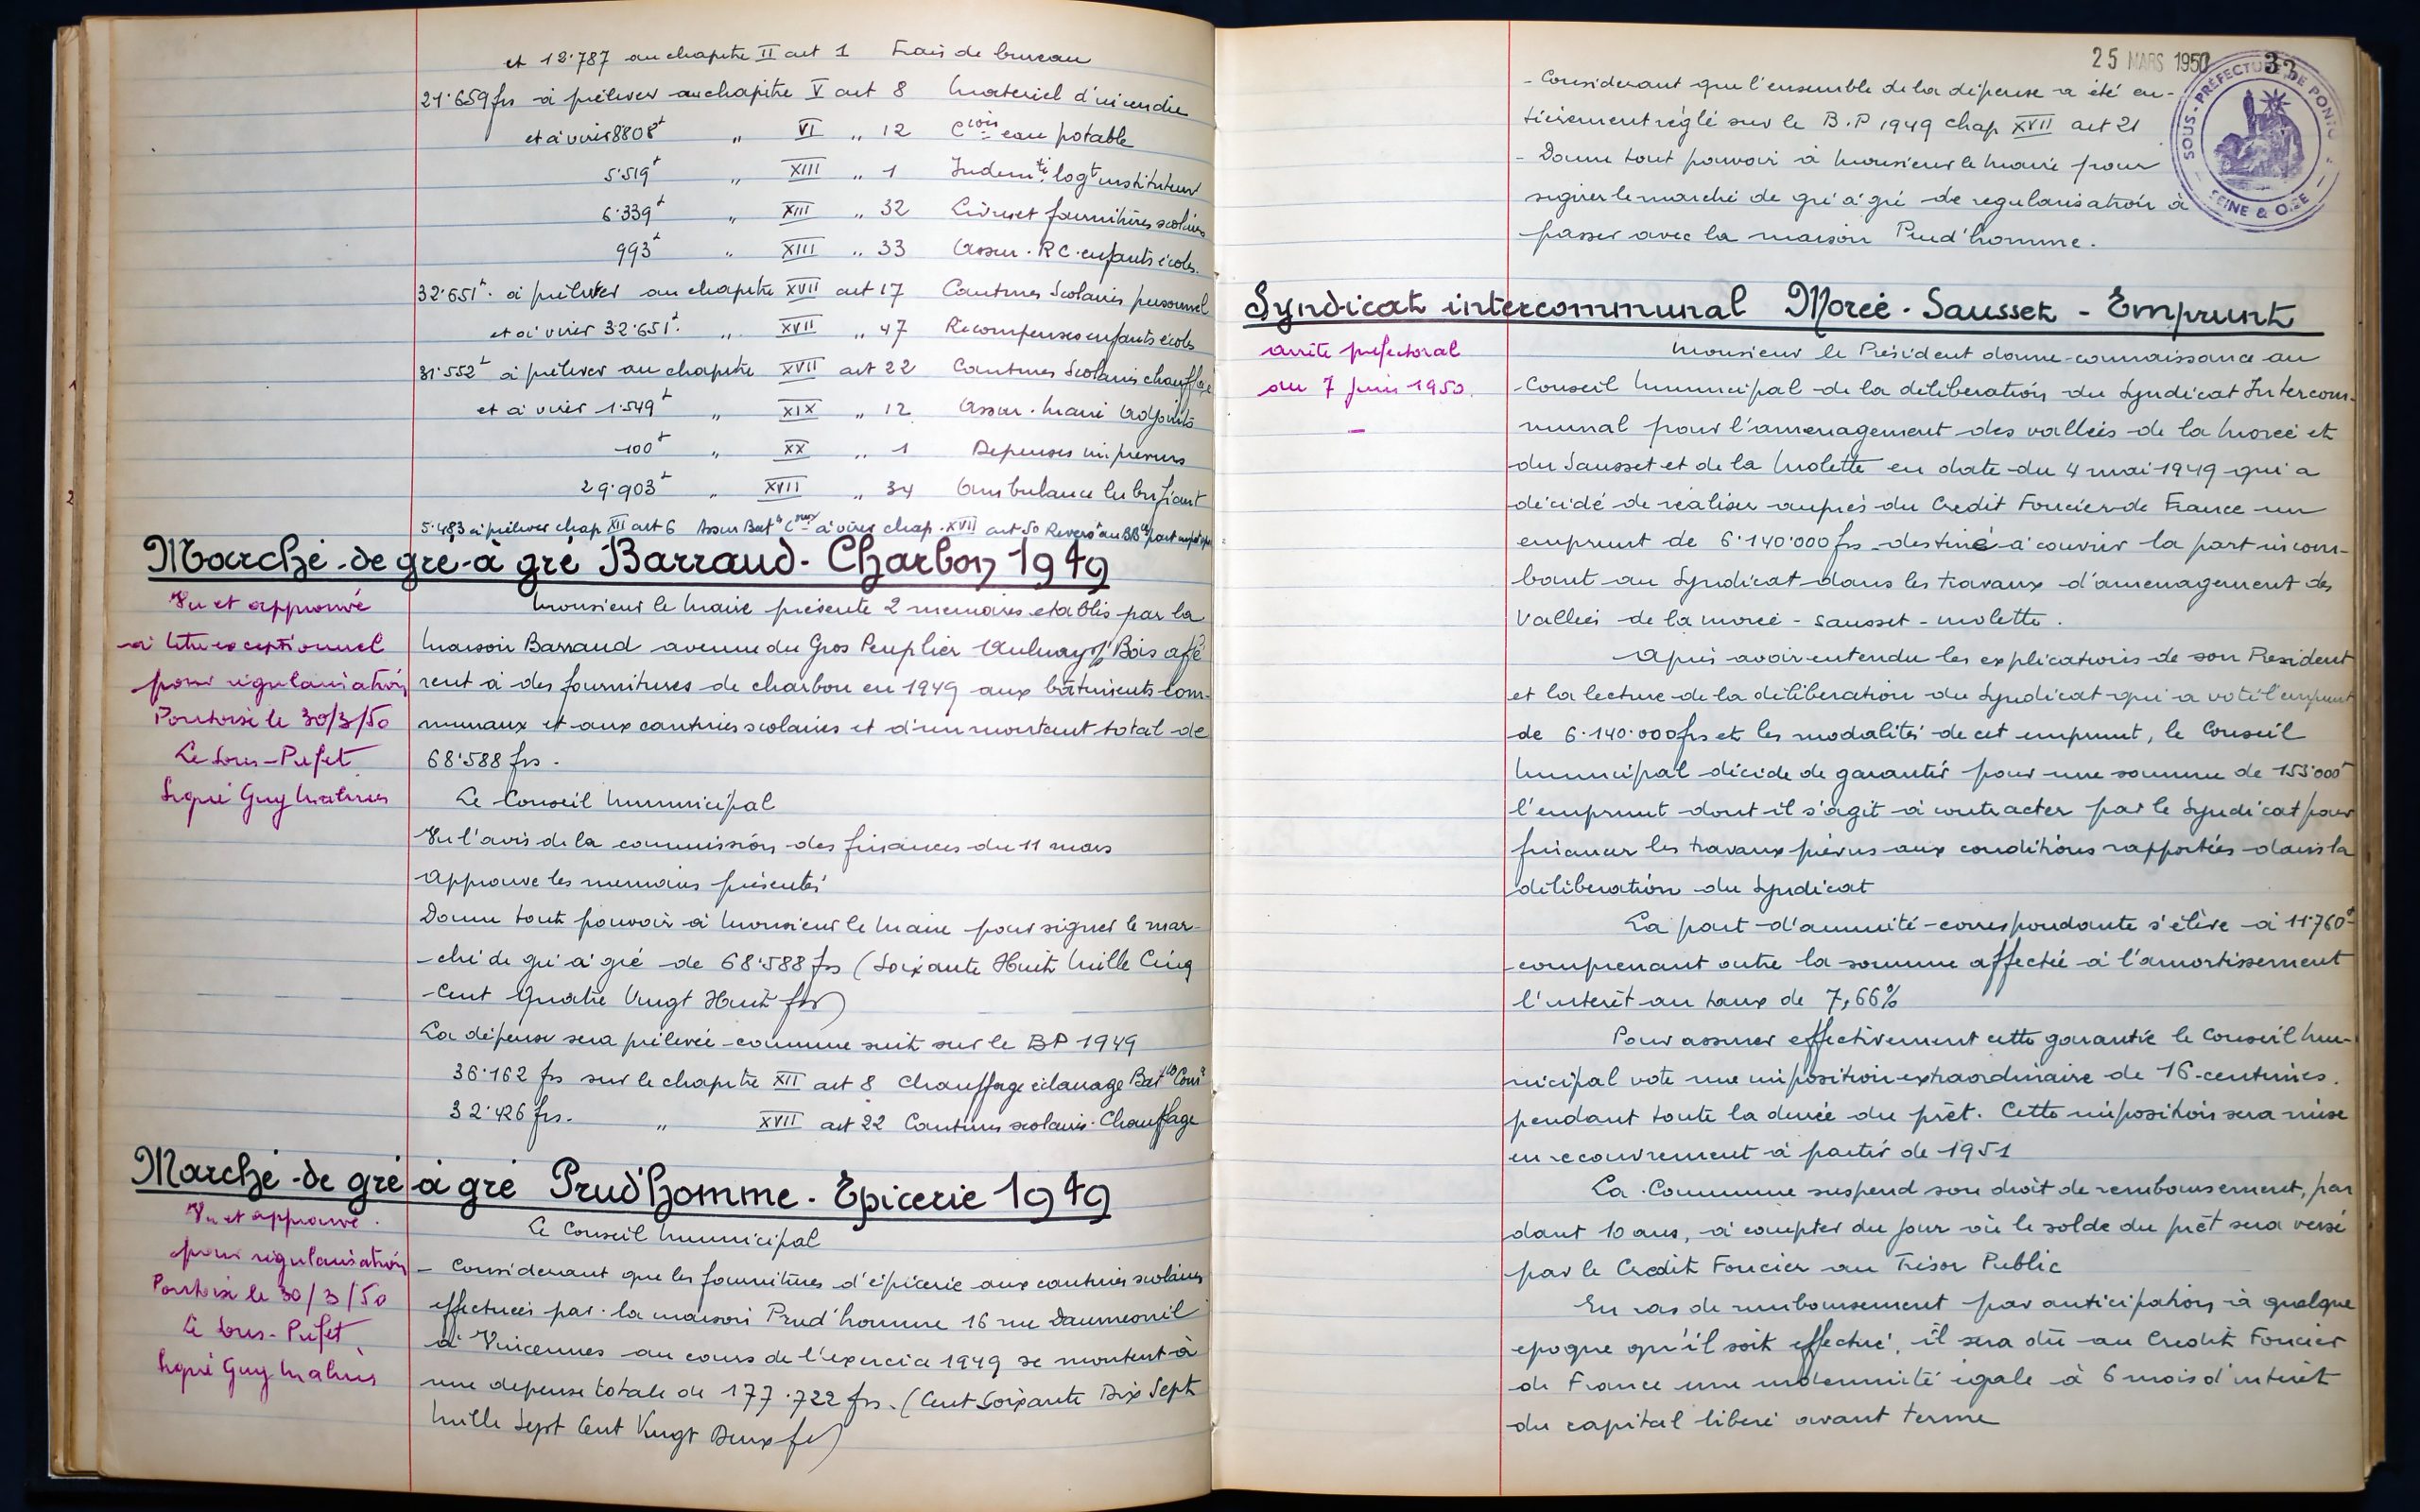 et 12.787 au chapitre II art 1 Frais de bureau
21.659 frs à prélever au chapitre V art 8 Materiel d'incendie
et à virer 8808f " VI " 12 C^ion eau potable
5.519f " XIII " 1 Indem^té log^t instituteurs
6.339f " XIII " 32 Livres et fournitures scolaires
993f " XIII " 33 Assur. R C. enfants écoles.
32.651f. à prélever au chapitre XVII art 17 Cantines Scolaires personnel
et à virer 32.651f. " XVII " 47 Récompenses enfants écoles
31.552f à prélever au chapitre XVII art 22 Cantines Scolaires chauffage
et à virer 1.549f " XIX " 12 Assur. Maire Adjoints
100f " XX " 1 Depenses imprevues
29.903f " XVII " 34 Ambulance
5.483 à prélever chap XII art 6 Assur Bat^ts C^aux à virer chap. XVII art 50
Marché de gré à gré Barraud - Charbon 1949
Vu et approuvé
à titre exceptionnel
pour régularisation
Pontoise le 30/3/50
Le Sous-Préfet
Signé Guy
Monsieur le Maire présente 2 memoires etablis par la
maison Barraud avenue du Gros Peuplier Aulnay s/ Bois affé
rent à des fournitures de charbon en 1949 aux bâtiments com-
munaux et aux cantines scolaires et d'un montant total de
68.588 frs.
Le Conseil Municipal
Vu l'avis de la commission des finances du 11 mars
Approuve les memoires présentés
Donne tout pouvoir à Monsieur le Maire pour signer le mar-
-ché de gré à gré de 68.588 frs (Soixante Huit Mille Cinq
-Cent Quatre Vingt Huit frs)
La dépense sera prélevée comme suit sur le BP 1949
36.162 frs sur le chapitre XII art 8 Chauffage éclairage Bat^ts Com^x
32.426 frs. " XVII art 22 Cantines scolaires. Chauffage
Marché de gré à gré Prud'homme - Epicerie 1949
Vu et approuvé.
pour régularisation
Pontoise le 30/3/50
Le Sous-Préfet
Signé Guy
Le Conseil Municipal
- Considerant que les fournitures d'épicerie aux cantines scolaires
effectuées par la maison Prud'homme 16 rue Daumesnil
à Vincennes au cours de l'exercice 1949 se montent à
une depense totale de 177.722 frs. (Cent Soixante Dix Sept
Mille Sept Cent Vingt Deux frs)
25 MARS 1950 33
SOUS-PRÉFECTURE DE PONTOISE
SEINE & OISE
- Considerant que l'ensemble de la dépense a été en-
tièrement réglé sur le B.P 1949 chap XVII art 21
- Donne tout pouvoir à Monsieur le Maire pour
signer le marché de gré à gré de regularisation à
passer avec la maison Prud'homme.
Syndicat intercommunal Morée - Sausset - Emprunt
arrêté préfectoral
du 7 juin 1950.
Monsieur le Président donne connaissance au
Conseil Municipal de la déliberation du Syndicat Intercom-
munal pour l'aménagement des vallées de la Morée et
du Sausset et de la Molette en date du 4 mai 1949 qui a
décidé de réaliser auprès du Credit Foncier de France un
emprunt de 6.140.000 frs destiné à couvrir la part incom-
bant au Syndicat dans les travaux d'aménagement des
Vallées de la morée - sausset - molette.
Après avoir entendu les explications de son President
et la lecture de la déliberation du Syndicat qui a voté l'emprunt
de 6.140.000 frs et les modalités de cet emprunt, le Conseil
Municipal décide de garantir pour une somme de 153.000f
l'emprunt dont il s'agit à contracter par le Syndicat pour
financer les travaux prévus aux conditions rapportées dans la
déliberation du Syndicat
La part d'annuité correspondante s'élève à 11.760f
comprenant outre la somme affectée à l'amortissement
l'interêt au taux de 7,66%
Pour assurer effectivement cette garantie le Conseil Mu-
nicipal vote une imposition extraordinaire de 16 centimes.
pendant toute la durée du prêt. Cette imposition sera mise
en recouvrement à partir de 1951
La Commune suspend son droit de remboursement, pen
dant 10 ans, à compter du jour où le solde du prêt sera versé
par le Credit Foncier au Trésor Public
En cas de remboursement par anticipation à quelque
epoque qu'il soit effectué, il sera dû au Credit Foncier
de France une indemnité égale à 6 mois d'intérêt
du capital liberé avant terme